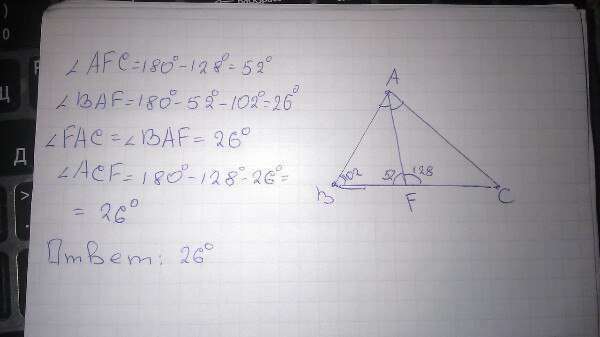 ∠AFC=180°-128°=52°
∠BAF=180°-52°-102°=26°
∠FAC=∠BAF=26°
∠ACF=180°-128°-26°=
=26°
Ответ: 26°
A
102
52
128
B
F
C
Ц
Д